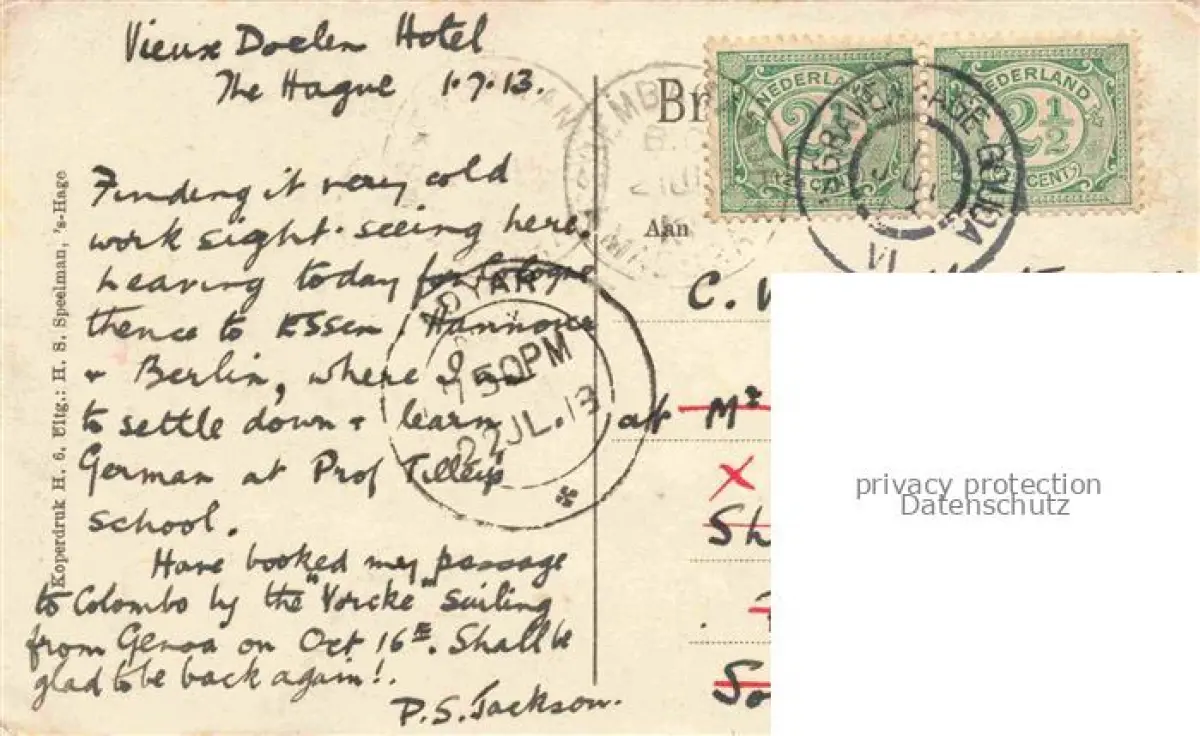 Vieux Doelen Hotel
The Hague 1.7.13.
Finding it very cold
work sight-seeing here.
Leaving today for Cologne
thence to Essen, Hannover
+ Berlin, where I
to settle down + learn
German at Prof Tilley's
school.
Have booked my passage
to Colombo by the "Yorcke" sailing
from Genoa on Oct 16th. Shall be
glad to be back again!.
P.S. Jackson.
Koperdruk H. 6. Uitg.: H. S. Speelman, 's-Hage
Br
Aan
NEDERLAND
2½
CENT
NEDERLAND
2½
CENT
'S GRAVENHAGE-GOUDA
JUL
VI
7 50PM
22JL.13
C.
at Mr
X
Sh
So
privacy protection
Datenschutz